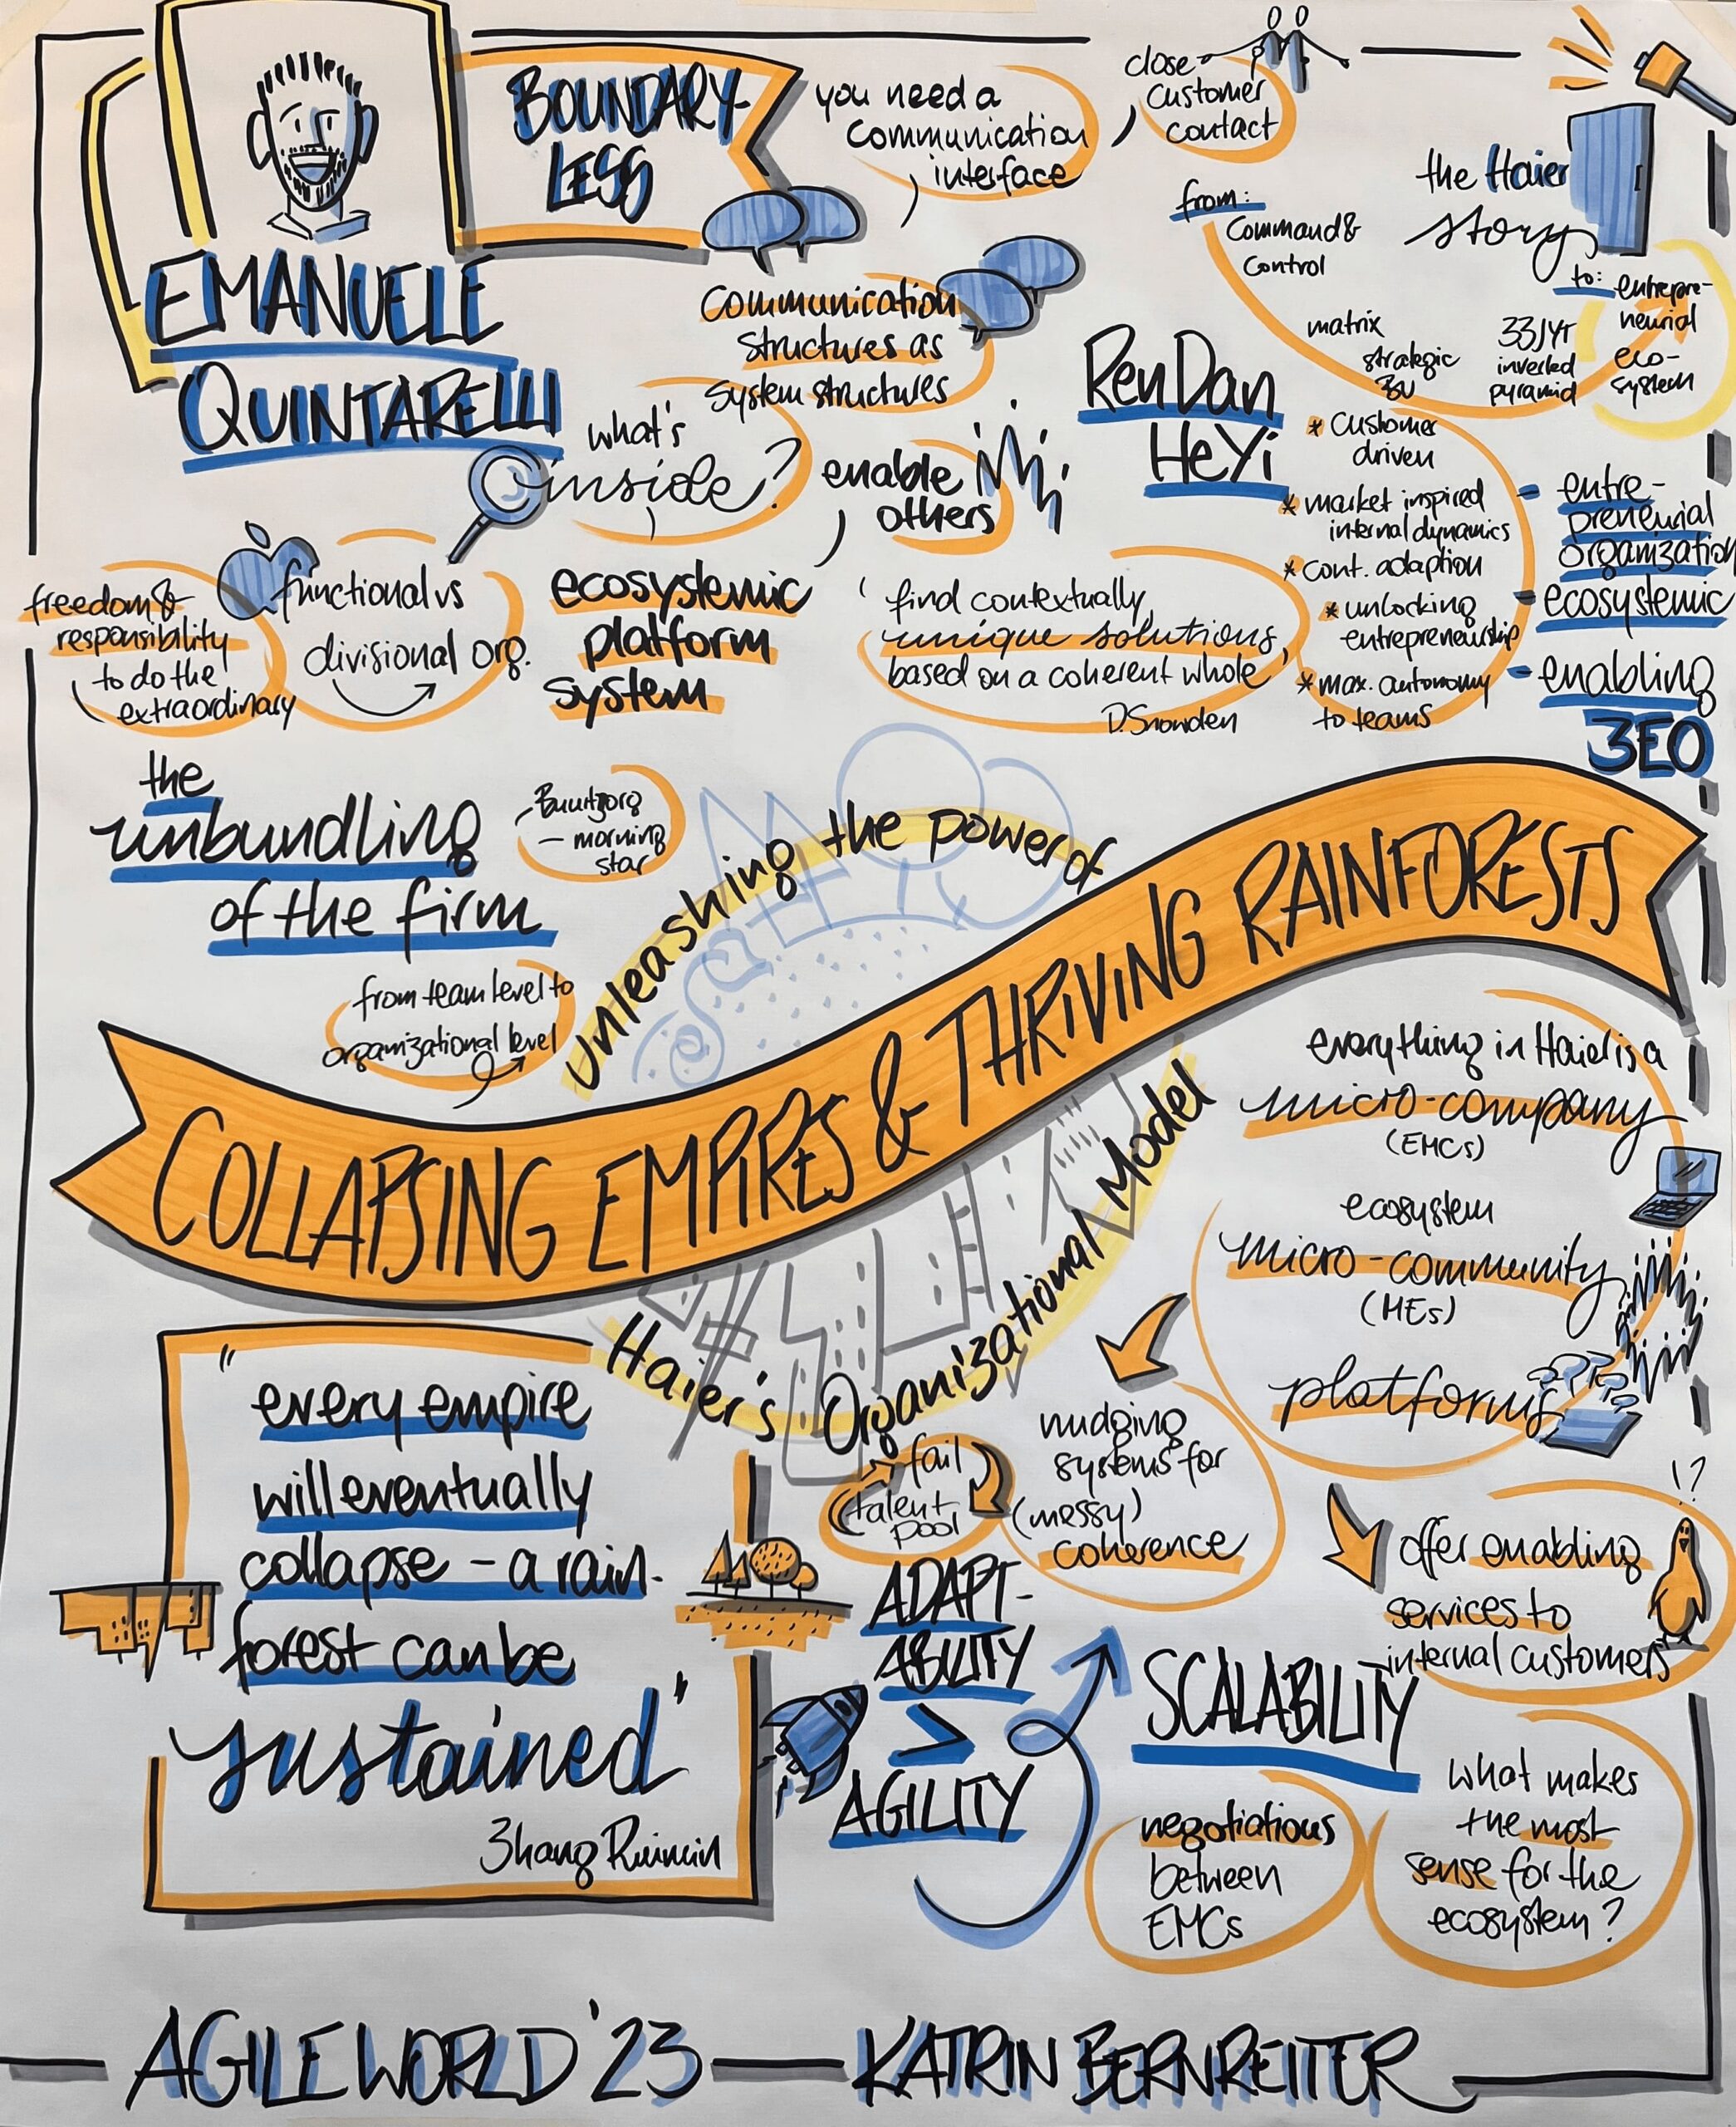 BOUNDARY-
LESS
EMANUELE
QUINTARELLI
you need a
communication
interface
close
customer
contact
the Haier
story
from:
Command &
Control
matrix
strategic
BU
33JYT
inverted
pyramid
to: entrepre-
neurial
eco-
system
Communication
structures as
system structures
what's
inside?
enable
others
RenDan
HeYi
* customer
driven
* market inspired
internal dynamics
* cont. adaption
* unlocking
entrepreneurship
* max. autonomy
to teams
- entre-
preneurial
organization
- ecosystemic
- enabling
3EO
freedom &
responsibility
to do the
extraordinary
functional vs
divisional org.
ecosystemic
platform
system
find contextually
unique solutions,
based on a coherent whole
D. Snowden
the
unbundling
of the firm
- Buurtzorg
- morning
star
from team level to
organizational level
Unleashing the power of
COLLAPSING EMPIRES & THRIVING RAINFORESTS
Haier's Organizational Model
everything in Haier is a
micro-company
(EMCs)
ecosystem
micro-community
(MEs)
platforms
"every empire
will eventually
collapse - a rain-
forest can be
sustained"
Zhang Ruimin
fail
talent
pool
nudging
systems for
(messy)
coherence
!?
offer enabling
services to
internal customers
ADAPT-
ABILITY
>
AGILITY
SCALABILITY
negotiations
between
EMCs
what makes
the most
sense for the
ecosystem?
AGILE WORLD '23 — KATRIN BERNREITER